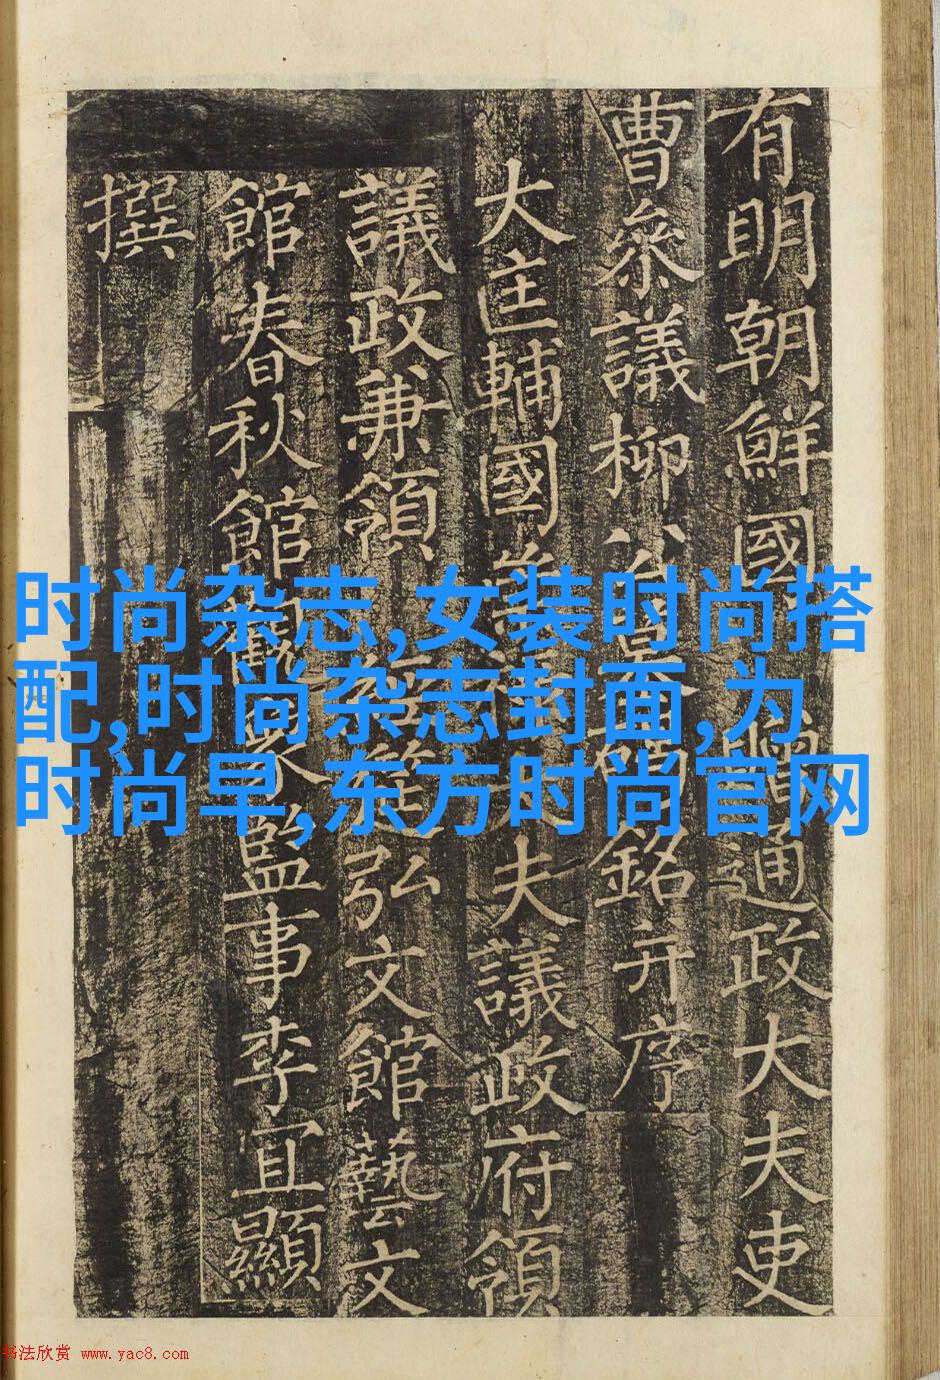 有明朝鮮國贈通政大夫吏
曹叅議柳公墓碣銘并序
大匡輔國崇祿大夫議政府領
議政兼領經筵弘文館藝文
館春秋館觀象監事李宜顯
撰
时尚杂志,女装时尚搭
配,时尚杂志封面,为
时尚早,东方时尚官网
书法欣赏 www.yac8.com